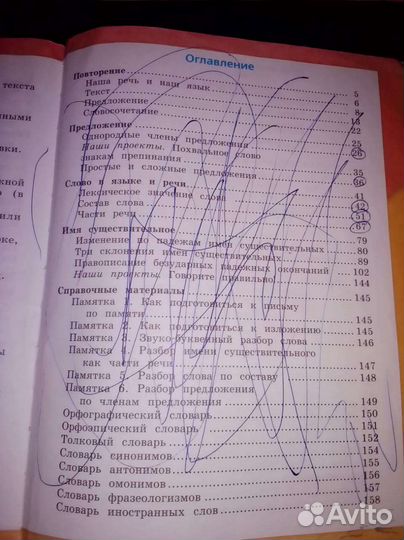 текста
ными
вки.
жной
(в
или
оке,
ы
Оглавление
Повторение
Наша речь и наш язык 5
Текст 6
Предложение 8
Словосочетание 13
Предложение 22
Однородные члены предложения 25
Наши проекты. Похвальное слово
знакам препинания 26
Простые и сложные предложения 35
Слово в языке и речи 36
Лексическое значение слова 41
Состав слова 42
Части речи 51
Имя существительное 67
Изменение по падежам имён существительных 79
Три склонения имён существительных 80
Правописание безударных падежных окончаний 89
Наши проекты. Говорите правильно! 102
Справочные материалы 144
Памятка 1. Как подготовиться к письму
по памяти 145
Памятка 2. Как подготовиться к изложению 145
Памятка 3. Звуко-буквенный разбор слова 146
Памятка 4. Разбор имени существительного
как части речи 147
Памятка 5. Разбор слова по составу 148
Памятка 6. Разбор предложения
по членам предложения 149
Орфографический словарь 150
Орфоэпический словарь 151
Толковый словарь 152
Словарь синонимов 154
Словарь антонимов 155
Словарь омонимов 156
Словарь фразеологизмов 157
Словарь иностранных слов 158
Avito